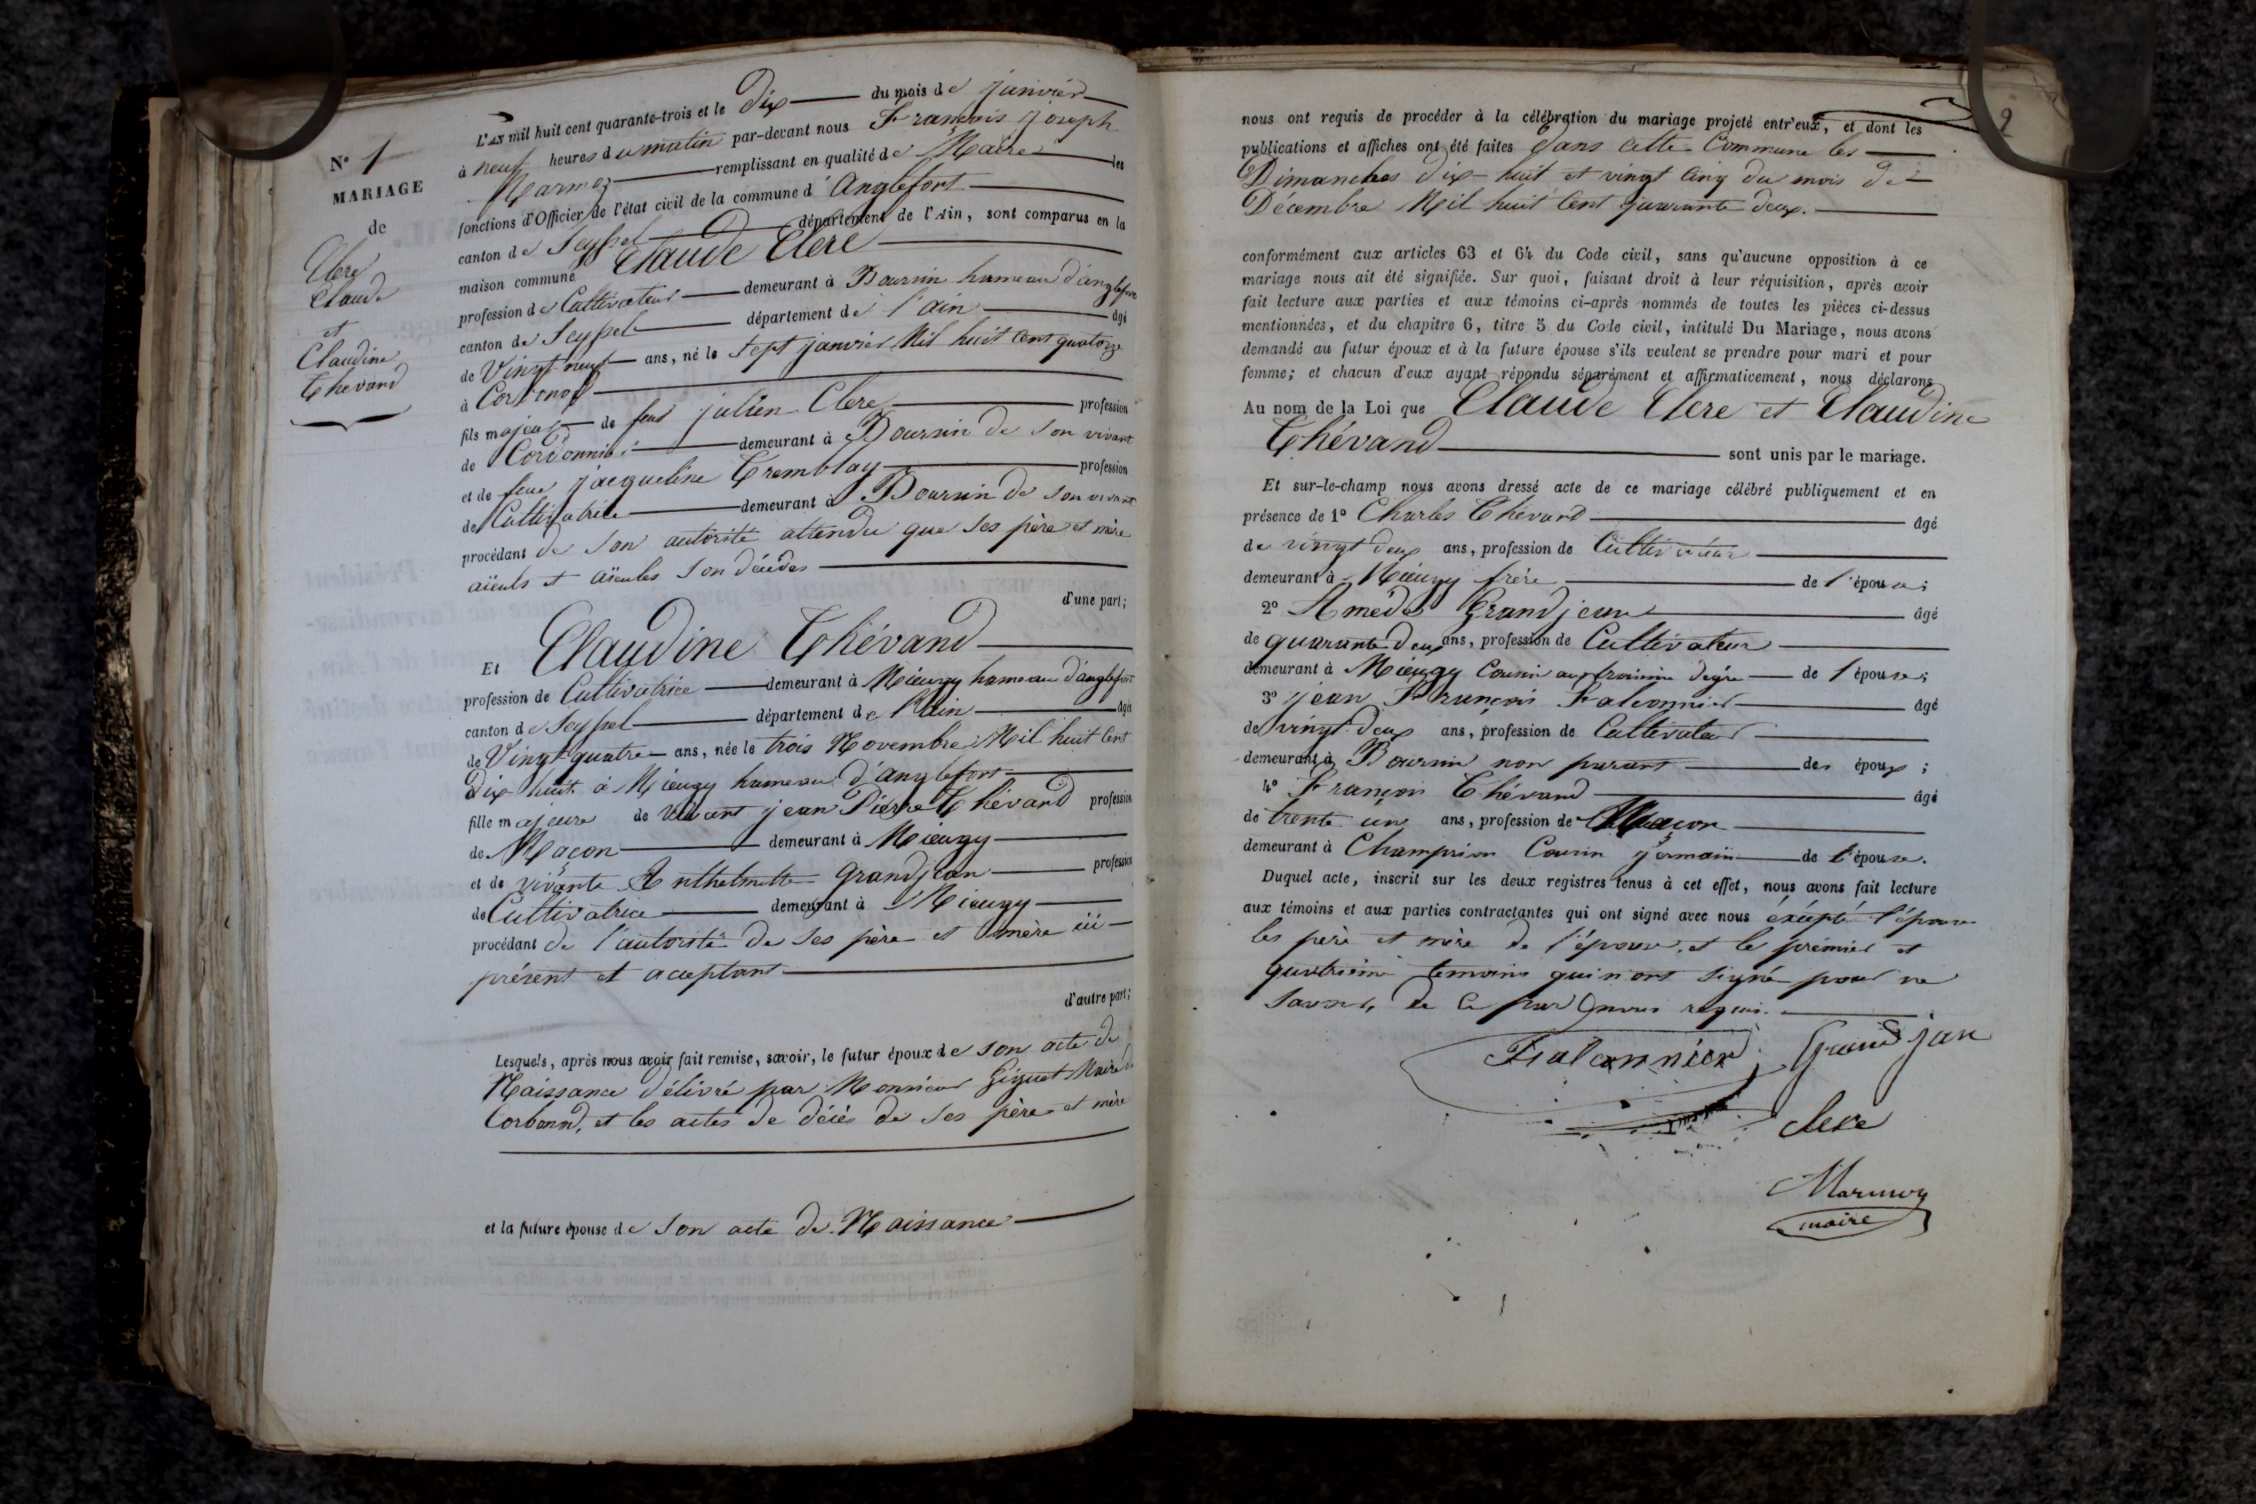 N° 1
MARIAGE
de
Clere
Claude
et
Claudine
Thevand
L'AN mil huit cent quarante-trois et le Dix du mois de janvier
à neuf heures du matin par-devant nous François joseph
Marmoz remplissant en qualité de Maire les
fonctions d'Officier de l'état civil de la commune d'Anglefort
canton de Seyssel département de l'Ain, sont comparus en la
maison commune Claude Clere
profession de Cultivateur demeurant à Boursin hameau d'anglefort
canton de Seyssel département de l'ain âgé
de Vingt neuf ans, né le sept janvier Mil huit Cent quatorze
à Corbonod
fils majeur de feu julien Clere profession
de Cordonnier demeurant à Boursin de son vivant
et de feue jacqueline Tremblay profession
de Cultivatrice demeurant à Boursin de son vivant
procédant de son autorité attendu que ses père et mère
aïeuls et aïeules son décédes
d'une part;
Et Claudine Thévand
profession de Cultivatrice demeurant à Mieugy hameau d'anglefort
canton de Seyssel département de l'ain âgée
de Vingt quatre ans, née le trois Novembre Mil huit Cent
dix huit à Mieugy hameau d'Anglefort
fille majeure de vivant jean Pierre Thévand profession
de Maçon demeurant à Mieugy
et de vivante Anthelmette Grandjean profession
de Cultivatrice demeurant à Mieugy
procédant de l'autorité de ses père et mère ici
présent et acceptant
d'autre part;
Lesquels, après nous avoir fait remise, savoir, le futur époux de son acte de
Naissance délivré par Monsieur Giguet Maire de
Corbonod, et les actes de décès de ses père et mère
et la future épouse de son acte de Naissance
2
nous ont requis de procéder à la célébration du mariage projeté entr'eux, et dont les
publications et affiches ont été faites dans cette Commune les
Dimanches dix-huit et vingt Cinq du mois de
Décembre Mil huit Cent quarante deux.
conformément aux articles 63 et 64 du Code civil, sans qu'aucune opposition à ce
mariage nous ait été signifiée. Sur quoi, faisant droit à leur réquisition, après avoir
fait lecture aux parties et aux témoins ci-après nommés de toutes les pièces ci-dessus
mentionnées, et du chapitre 6, titre 5 du Code civil, intitulé Du Mariage, nous avons
demandé au futur époux et à la future épouse s'ils veulent se prendre pour mari et pour
femme; et chacun d'eux ayant répondu séparément et affirmativement, nous déclarons
Au nom de la Loi que Claude Clere et Claudine
Thévand sont unis par le mariage.
Et sur-le-champ nous avons dressé acte de ce mariage célébré publiquement et en
présence de 1° Charles Thévand âgé
de vingt deux ans, profession de Cultivateur
demeurant à Mieugy frère de l'épouse;
2° Amédé Grandjean âgé
de quarante deux ans, profession de Cultivateur
demeurant à Mieugy Cousin au troisième dégré de l'épouse;
3° jean François Falconnier âgé
de vingt deux ans, profession de Cultivateur
demeurant à Boursin non parant des époux;
4° François Thévand âgé
de trente un ans, profession de Maçon
demeurant à Champrion Cousin germain de l'épouse.
Duquel acte, inscrit sur les deux registres tenus à cet effet, nous avons fait lecture
aux témoins et aux parties contractantes qui ont signé avec nous éxcépté l'épouse
les père et mère de l'épouse, et le prémier et
quatrième temoins qui n'ont signé pour ne
savoir, de ce par nous requis.
Falconnier Grandjan
Clere
Marmoz
maire